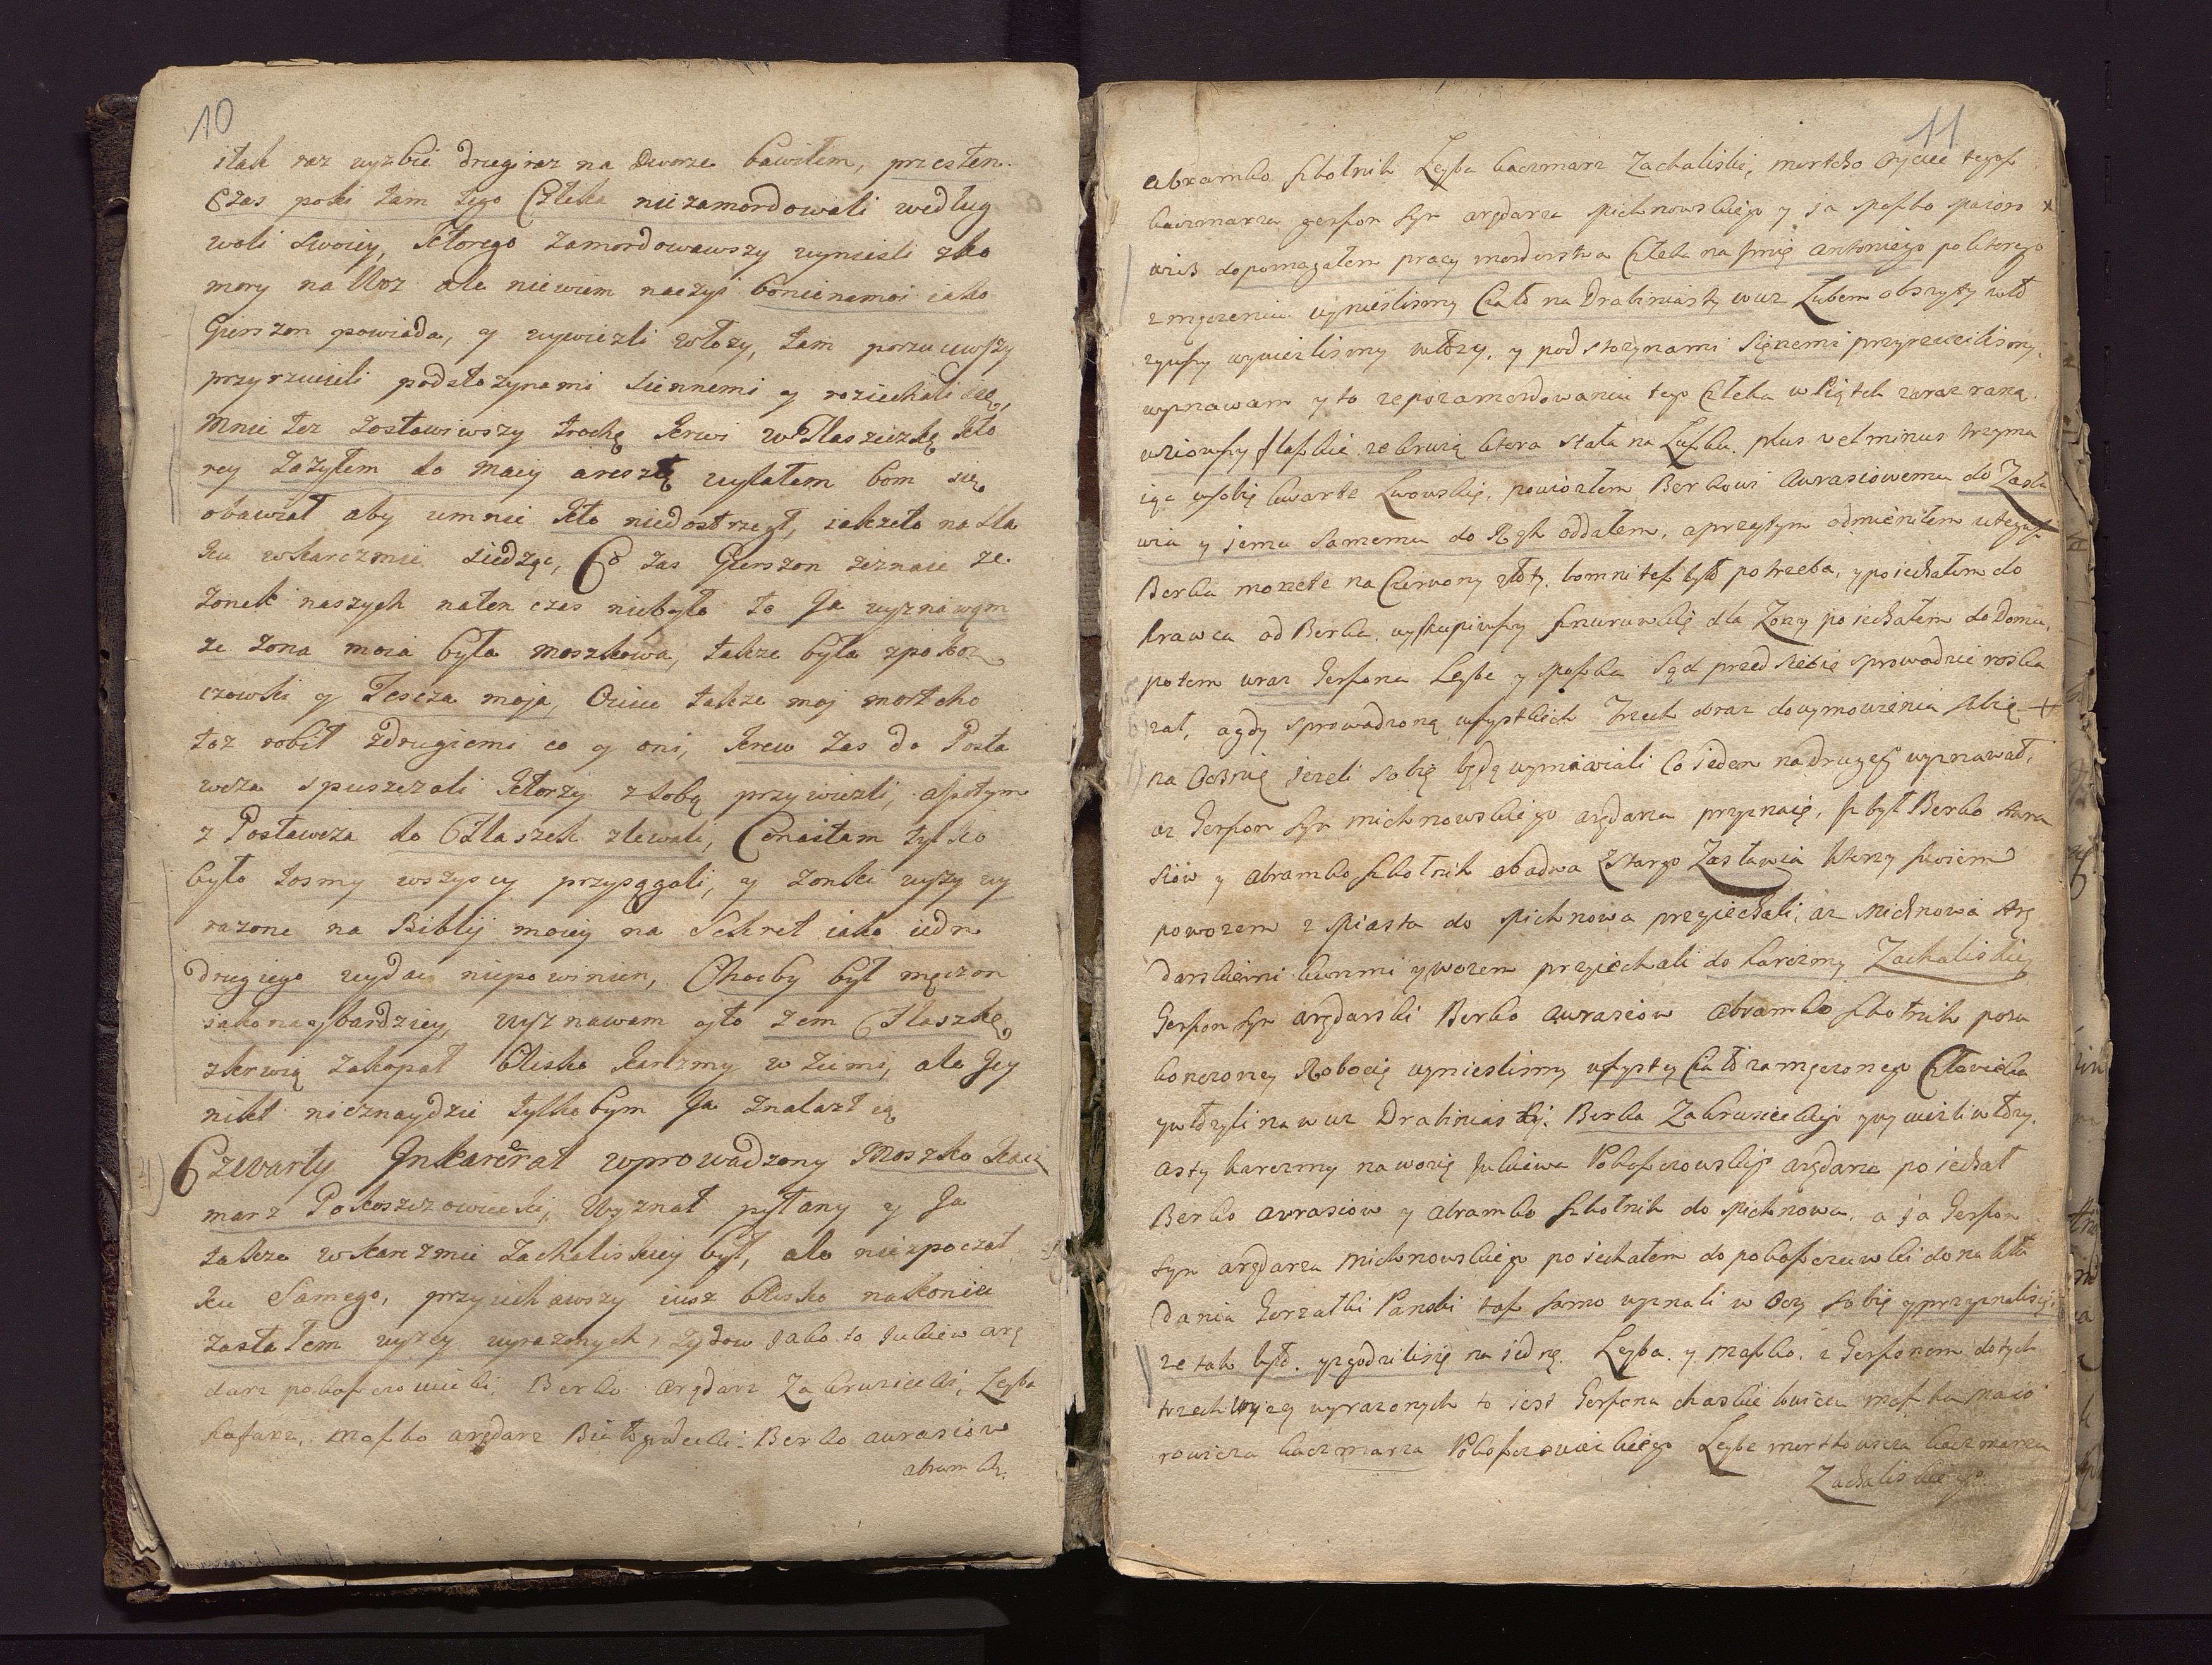 10
i tak raz w yzbie drugi raz na Dworze bawiłem, przesten
Czas poki tam tego Człeka nie zamordowali według
woli swoiey, Ktorego zamordowawszy wynieśli zko
mory na Woz ale niewiem naczyi Konie namoi iako
Gierszon powiada, y wywiezli włozy, tam porzuciwszy
przyrzucili podstożynami siennemi y roziechali się,
mnie tez zostawiwszy trochę Krwi w Flaszeczkę Kto
rey zażyłem do Macy a resztę wylałem bom się
obawiał aby umnie Kto niedostrzegł, iakzeto na szla
ku w karczmie siedząc, Co zas Gierszon zeznaie ze
Zonek naszych naten czas niebyło to Ja wyznawam
ze zona moia była Moszkowa, także była zpokosz
czowki y Tescza moja, Ociec także moj mortcho
toz robił zdrugiemi co y oni, Krew zas do Posta
wcza spuszczali Ktorzy z sobą przywiezli, a potym
z Postawcza do Flaszek zlewali, Conas tam tylko
było tosmy wszyscy przysęgali, y zonki wyzy wy
razone na Biblij moiey na Sekret iako iedn
drugiego wydac niepowinien, Chocby był męczon
iako naybardziey, wyznawam yto zem Flaszkę
zkrwią zakopał blisko Karczmy w ziemi, ale Jey
nikt nieznaydzie tylko bym Ja znalazł ią
4) Czwarty Inkarcerat wprowadzony Moszko Kacz
marz Pokoszczowiecki, Wyznał pytany y Ja
także w karczmie Zachaliskiey był, ale niezpocząt
ku Samego, przyiechawszy iusz blisko na konie
zastałem wyzey wyrazonych, zydow Jako to Jukiew arę
darz pokoszczowiecki, Berko arędarz Zabrusiecki, Leyba
Moszko arędarz Białogrodecki: Berko awrasiow
abramko.
11
Abramko szkolnik Leyba kaczmarz Zachaliski, mortcho Oyciec tegosz
kaczmarza gerszon syn arędarza Michnowskiego y ja Moszko Maioro x
wicz dopomagałem pracy morderstwa Człeka na Jmię Antoniego po ktorego
zmęczeniu wynieślismy Ciało na Drabiniasty woz Łubem obszyty wło
zywszy wywiezlismy włozy, y pod stożynami Siennemi przyrzucilismy,
wyznawam y to ze po zamordowaniu tego Człeka w Piątek zaraz raną
wziowszy flaszkie ze krwią ktora stała na Łuszku plus vel minus trzyma
iąc w sobię kwarte Lwowskię, powiozłem Berkowi Awrasiowemu do Zasła
wia y jemu samemu do Rąk oddałem, a przytym odmieniłem u tegosz
Berka monete na Czerwony złoty, bom mi tesz było potrzeba, y poiechałem do
krawca od Berka, wykupiwszy sznurowkię dla Zony poiechałem do Domu,
potem wraz Gerszona Leybe y Moszka Sąd przed siebię sprowadzic roska
zał, a gdy sprowadzoną wszystkiech Trzech oraz do wymowienia sobię +
na Ocznię jezeli sobię będą wymawiali Co ieden na drugiego wyznawał,
az Gerszon syn michnowskiego arędarza przyznaię, sz był Berko Awra
siow y Abramko szkolnik obadwa z starego Zasławia ktorzy swoiem
powozem z Miasta do Michnowa przyiechali, az Michnowa Arę
darskiemi konmi y wozem przyiechali do karczmy Zachaliskiey
Gerszon syn arędarski Berko Awrasiow Abramko szkolnik poza
konczoney Robocię wynieslismy wszystcy Ciało zamęczonego Człowieka
y włozyli na woz Drabiniasty. Berka Zabrusieckiego y wywiezli włozy.
a s ty karczmy na wozię Jukiewa Pokoszczowskiego arędarza poiechał
Berko awrasiow y Abramko szkolnik do Michnowa, a ja Gerszon
syn arędarza Michnowskiego poiechałem do pokoszczuwki do na kła
dania Gorzałki Panski tosz samo wyznali w Oczy sobię y przyznalisię
ze tak było, y zgodzilisię na jedną. Leyba y Moszko, z Gerszonem do tych
trzech wyzey wyrazonych to jest Gerszona chaskiclowicza Moszka Maio
rowicza kaczmarza Pokoszczowieckiego Leybe mortkowicza kaczmarza
Zachaliskiego